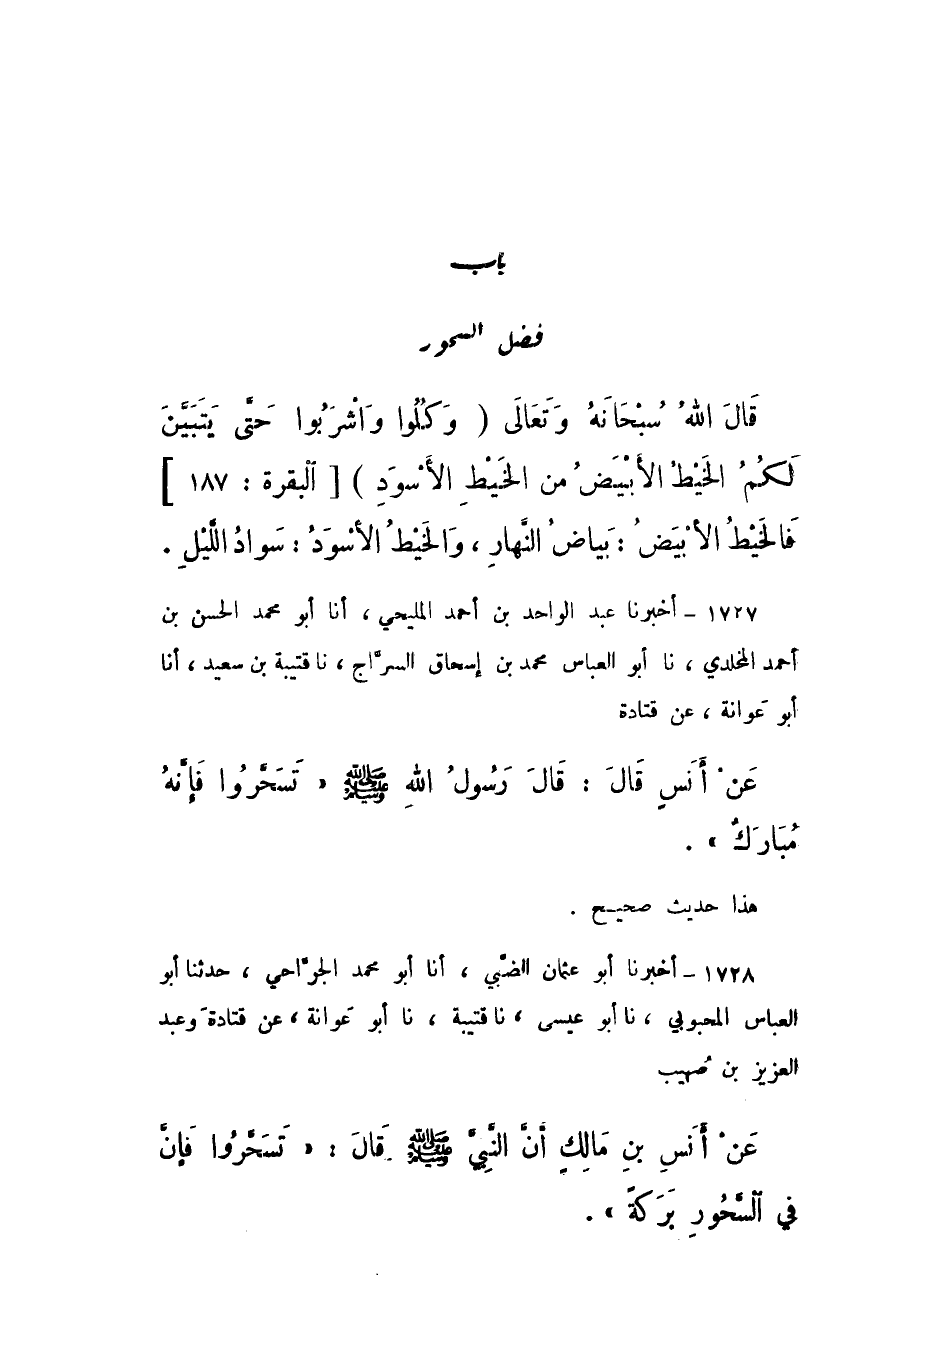 باب
فضل السحور
قَالَ اللهُ سُبْحَانَهُ وَتَعَالَى ( وَكُلُوا وَاشْرَبُوا حَتَّى يَتَبَيَّنَ
لَكُمُ الخَيْطُ الأَبْيَضُ من الخَيْطِ الأَسْوَدِ ) [ البقرة : ١٨٧ ]
فَالخَيْطُ الأَبْيَضُ : بَياضُ النَّهارِ ، وَالخَيْطُ الأَسْوَدُ : سَوادُ اللَّيْلِ .
١٧٢٧ – أخبرنا عبد الواحد بن أحمد المليحي ، أنا أبو محمد الحسن بن
أحمد المخلدي ، نا أبو العباس محمد بن إسحاق السرَّاج ، نا قتيبة بن سعيد ، أنا
أبو عَوانة ، عن قتادة
عَنْ أَنَسٍ قَالَ : قَالَ رَسُولُ اللهِ ﷺ « تَسَحَّرُوا فَإِنَّهُ
مُبَارَكٌ » .
هذا حديث صحيح .
١٧٢٨ – أخبرنا أبو عثمان الضَّبي ، أنا أبو محمد الجرَّاحي ، حدثنا أبو
العباس المحبوبي ، نا أبو عيسى ، نا قتيبة ، نا أبو عَوانة ، عن قتادةَ وعبد
العزيز بن صُهيب
عَنْ أَنَسِ بنِ مَالِكٍ أَنَّ النَّبِيَّ ﷺ قَالَ : « تَسَحَّرُوا فَإِنَّ
في السَّحُورِ بَرَكةً » .